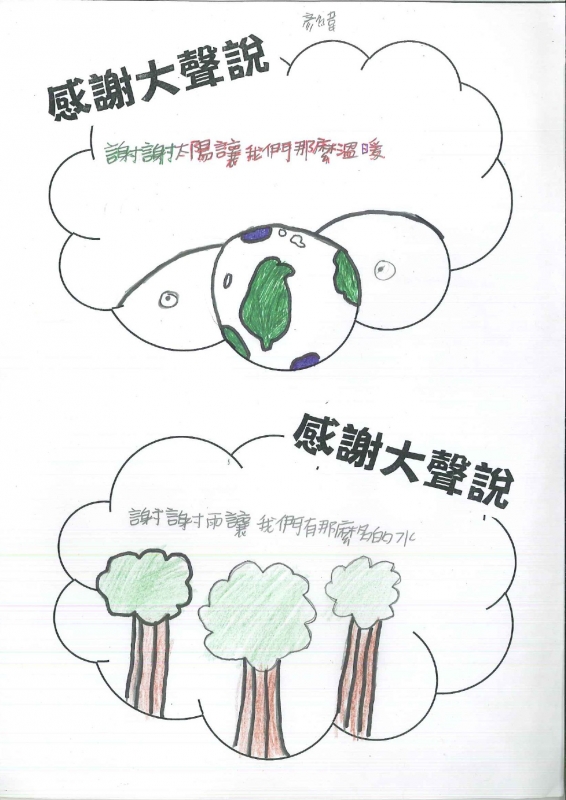 感謝大聲說
謝謝太陽讓我們那麼溫暖
感謝大聲說
謝謝雨讓我們有那麼多的水